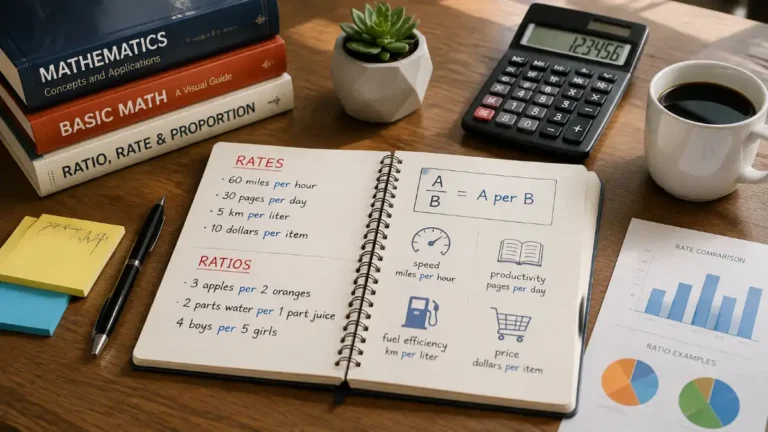 MATHEMATICS
Concepts and Applications
BASIC MATH A Visual Guide
RATIO, RATE & PROPORTION
123456
RATES
• 60 miles per hour
• 30 pages per day
• 5 km per liter
• 10 dollars per item
RATIOS
• 3 apples per 2 oranges
• 2 parts water per 1 part juice
4 boys per 5 girls
A
B
= A per B
speed
miles per hour
productivity
pages per day
fuel efficiency
km per liter
price
dollars per item
RATE COMPARISON
RATIO EXAMPLES